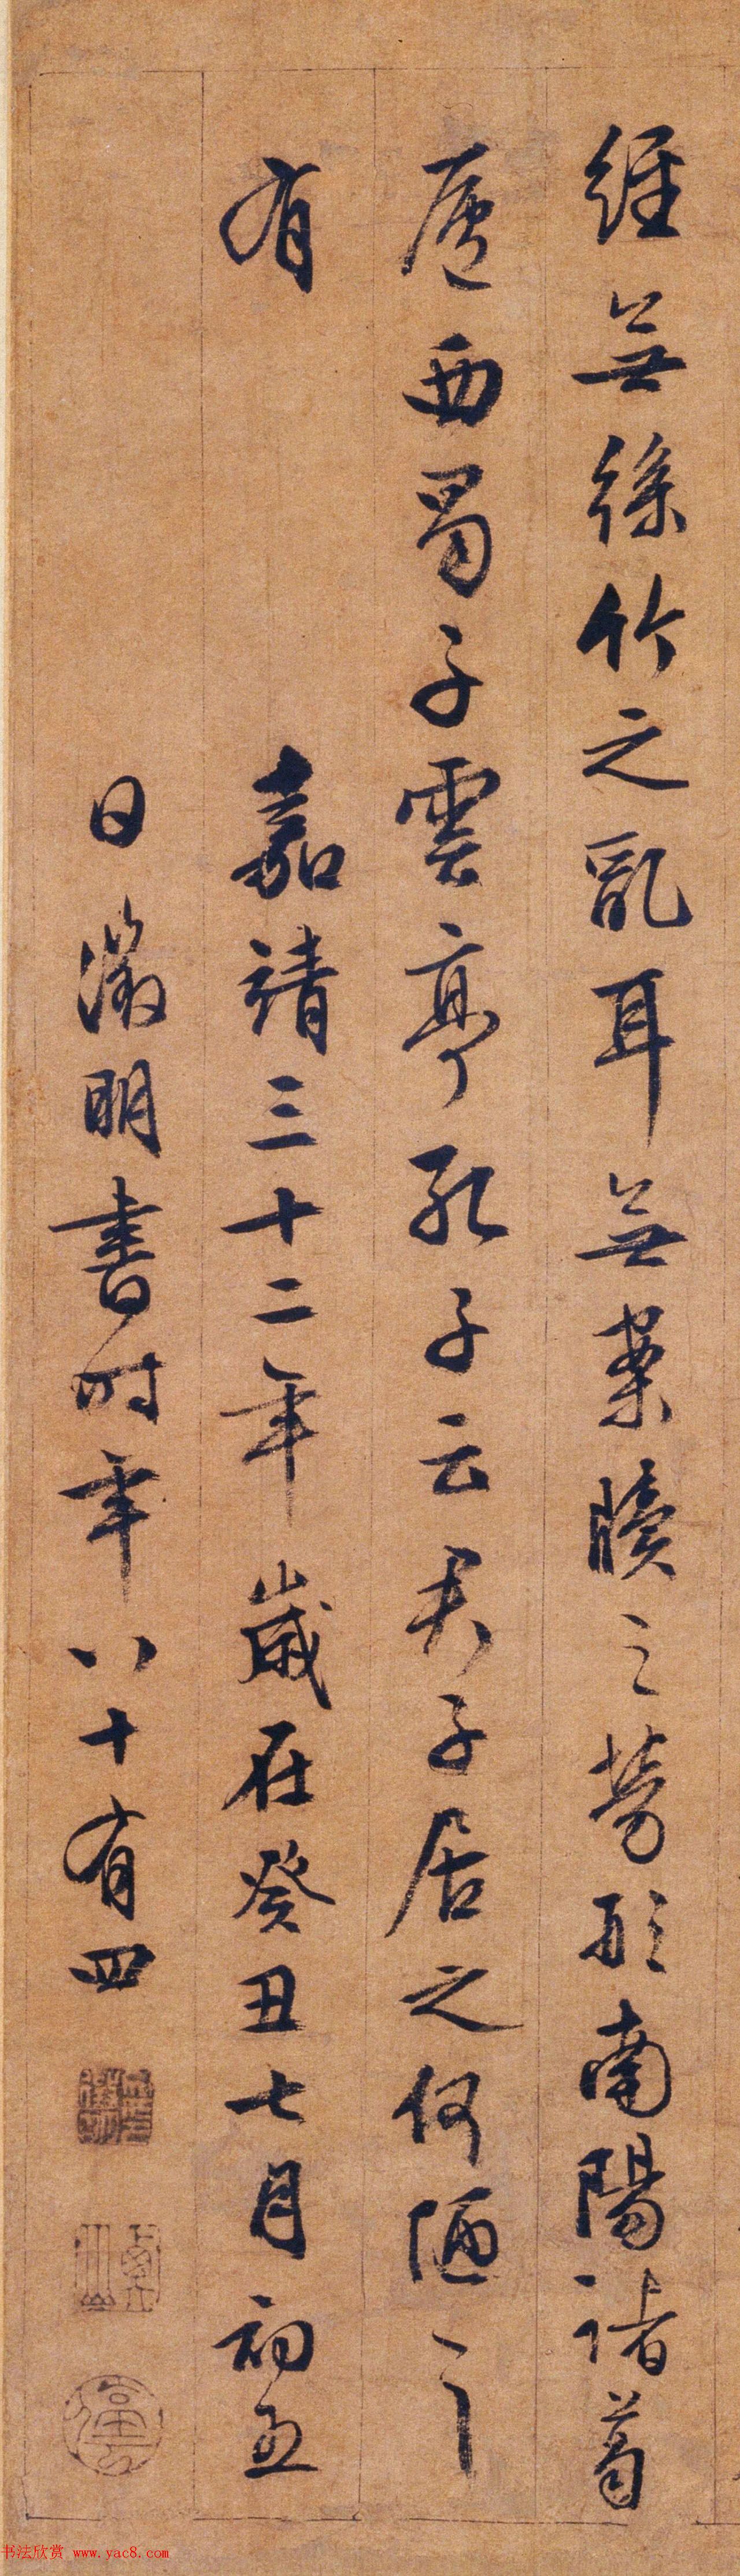 經無絲竹之亂耳無案牘之勞形南陽諸葛
廬西蜀子雲亭孔子云君子居之何陋之
有 嘉靖三十二年歲在癸丑七月初五
日徵明書時年八十有四
书法欣赏 www.yac8.com